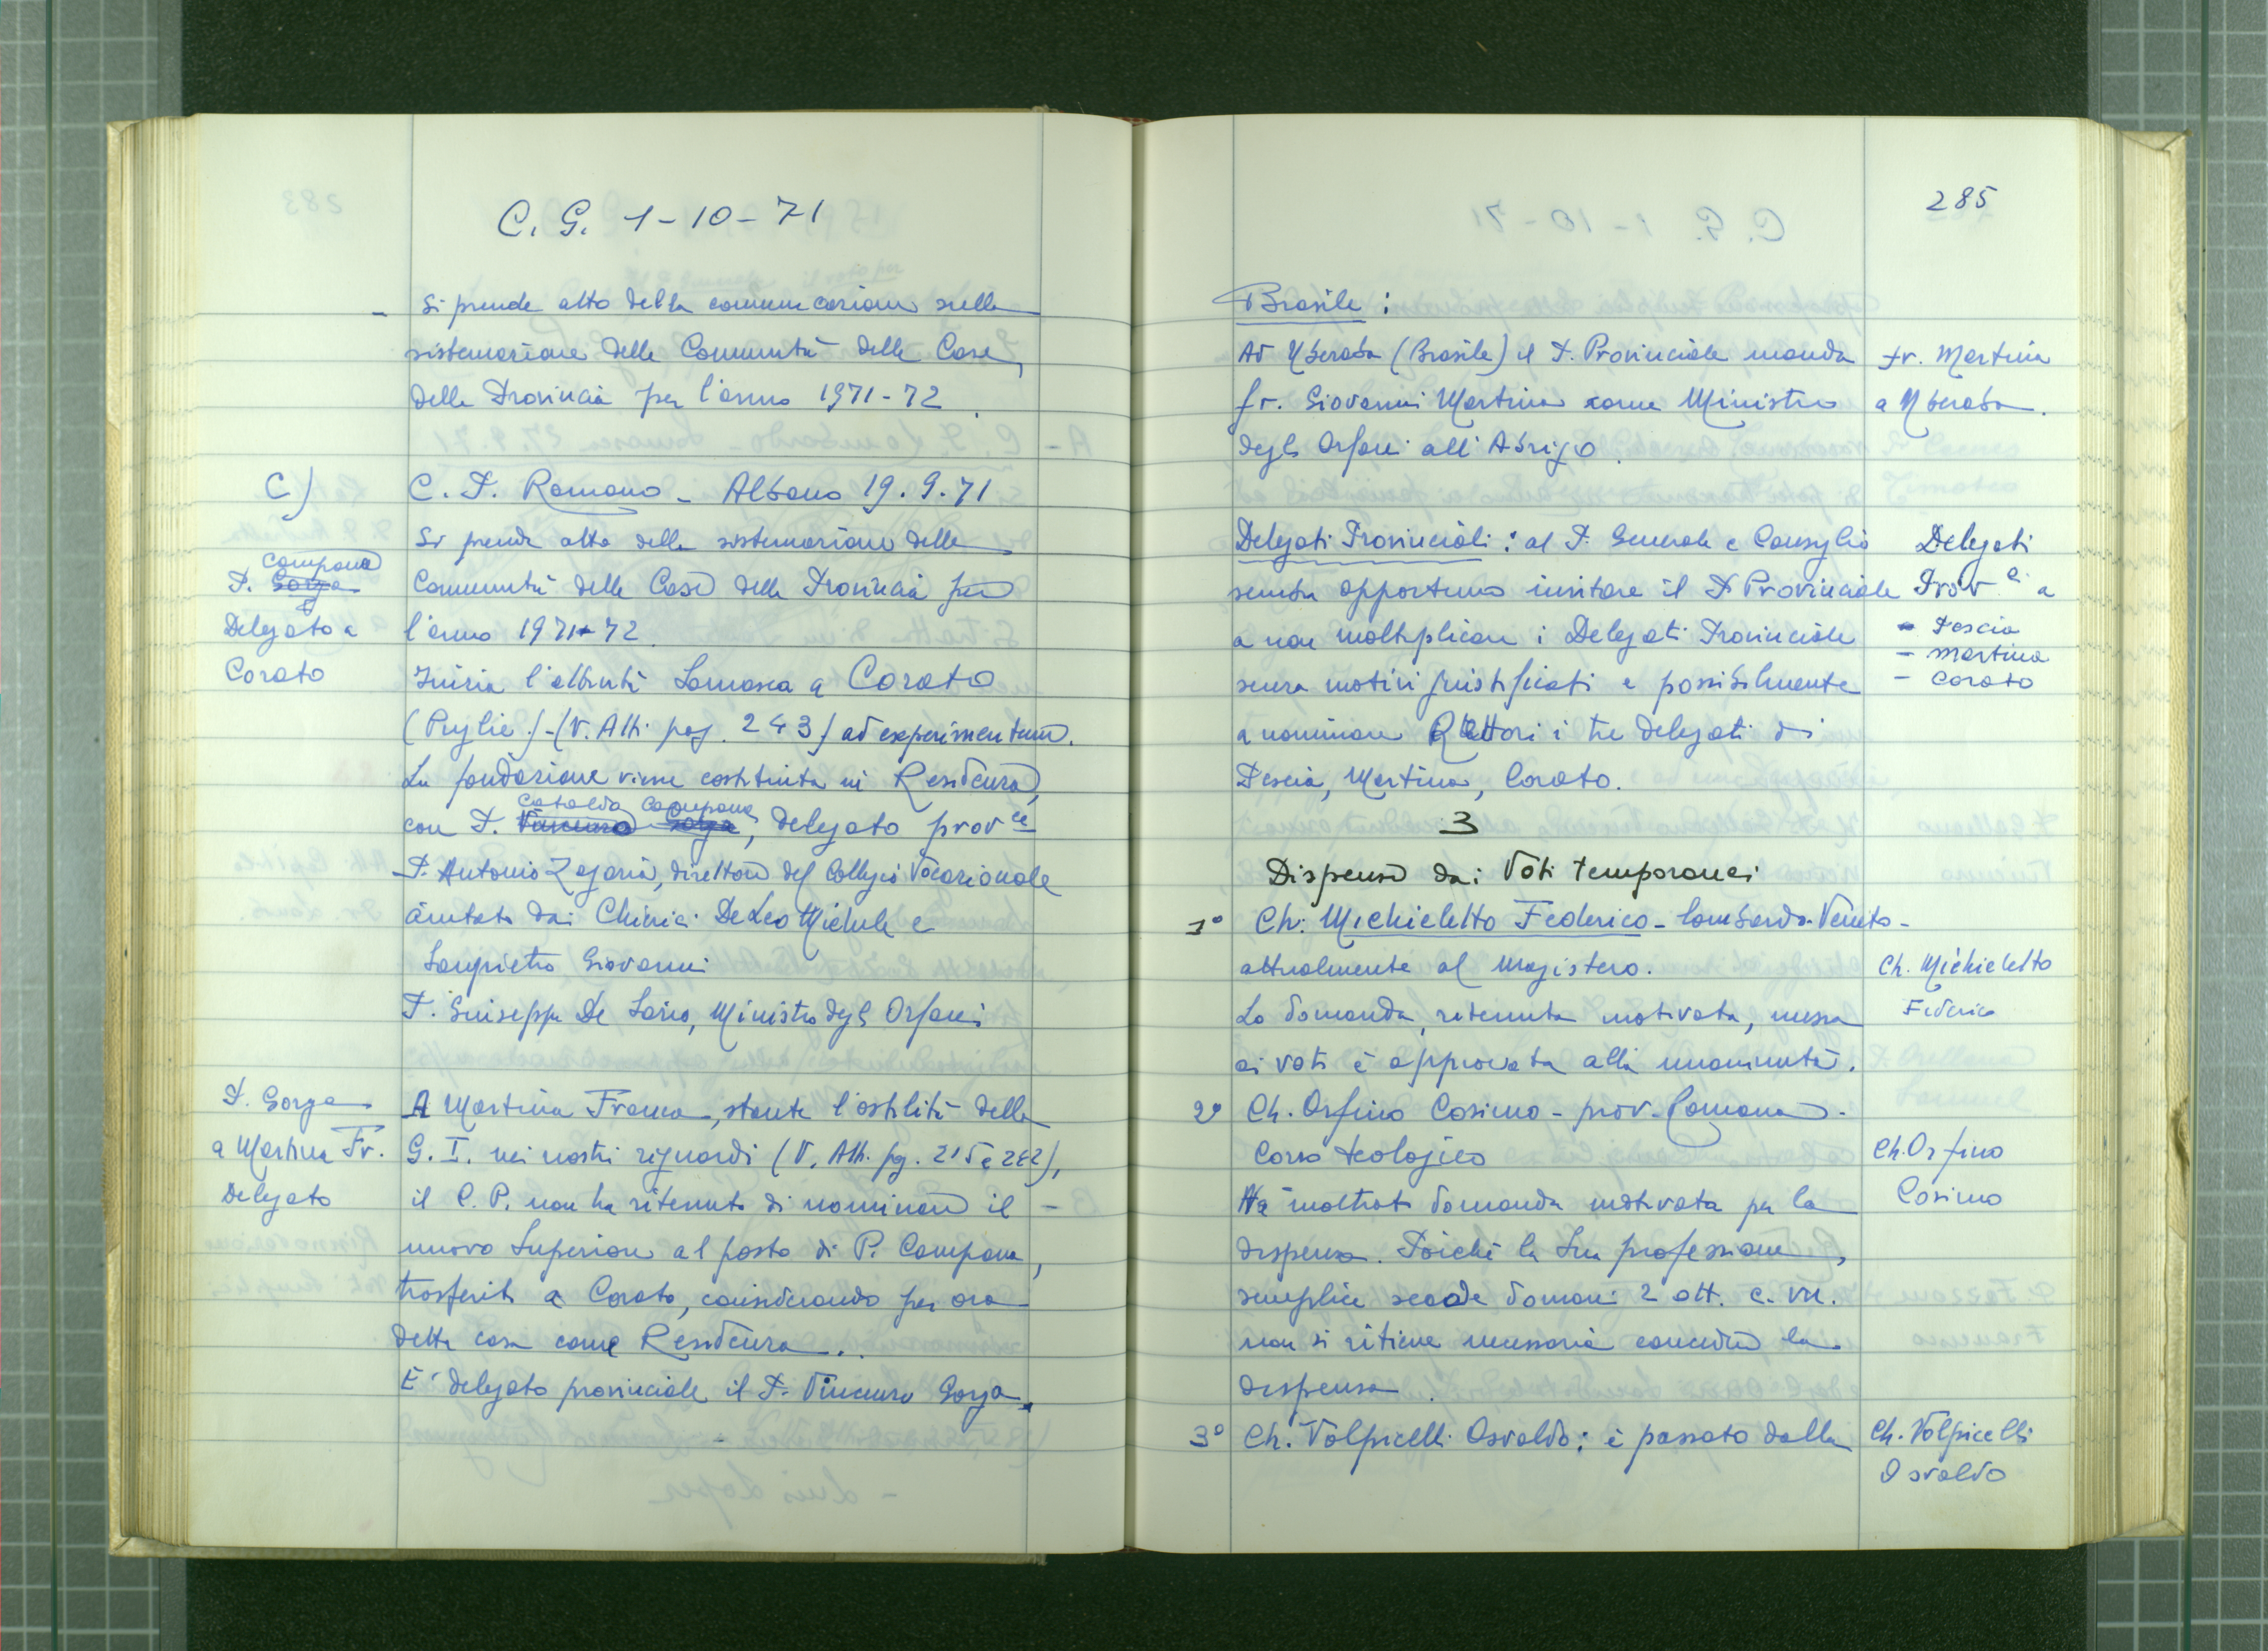 C. G. 1-10-71
- Si prende atto della comunicazione sulla
sistemazione delle Comunità delle Case
della Provincia per l'anno 1971-72.
C)
C. P. Romano - Albano 19.9.71
Si prende atto della sistemazione delle
Comunità delle Case della Provincia per
l'anno 1971-72.
P. Gorga Campana
Delegato a
Corato
Inizia l'attività Somasca a Corato
(Puglie) - (V. Atti pag. 243) ad experimentum.
La fondazione viene costituita in Residenza,
con P. Vincenzo Gorga Cataldo Campana, delegato prov.le
P. Antonio Zagaria, direttore del Collegio Vocazionale
aiutato dai Chierici De Leo Michele e
Sanpietro Giovanni
P. Giuseppe De Sario, Ministro degli Orfani
P. Gorga
a Martina Fr.
Delegato
A Martina Franca, stante l'ostilità della
G. I. nei nostri riguardi (V. Atti. pg. 215 e 242),
il C. P. non ha ritenuto di nominare il -
nuovo Superiore al posto di P. Campana,
trasferito a Corato, considerando per ora
detta casa come Residenza.
E' delegato provinciale il P. Vincenzo Gorga.
285
Brasile:
Ad Uberaba (Brasile) il P. Provinciale manda
fr. Giovanni Martina come Ministro
degli Orfani all'Abrigo.
fr. Martina
a Uberaba.
Delegati Provinciali: al P. Generale e Consiglio
sembra opportuno invitare il P Provinciale
a non moltiplicare i Delegati Provinciali
senza motivi giustificati e possibilmente
a nominare Rettori i tre delegati di
Pescia, Martina, Corato.
Delegati
Prov.li a
- Pescia
- Martina
- Corato
3
Dispense dai Voti temporanei
1° Ch. Michieletto Federico - Lombardo-Veneto -
attualmente al Magistero.
La domanda, ritenuta motivata, messa
ai voti è approvata alla unanimità.
Ch. Michieletto
Federico
2° Ch. Orfino Cosimo - prov. Romana -
Corso teologico
Ha inoltrato domanda motivata per la
dispensa. Poiché la Sua professione
semplice scade domani 2 ott. c. m.
non si ritiene necessario concedere la
dispensa.
Ch. Orfino
Cosimo
3° Ch. Volpicelli Osvaldo: è passato dalla
Ch. Volpicelli
Osvaldo